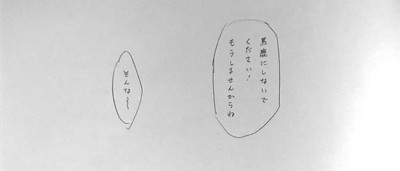 馬鹿にしないで
ください!
もうしませんからね
そんな〜